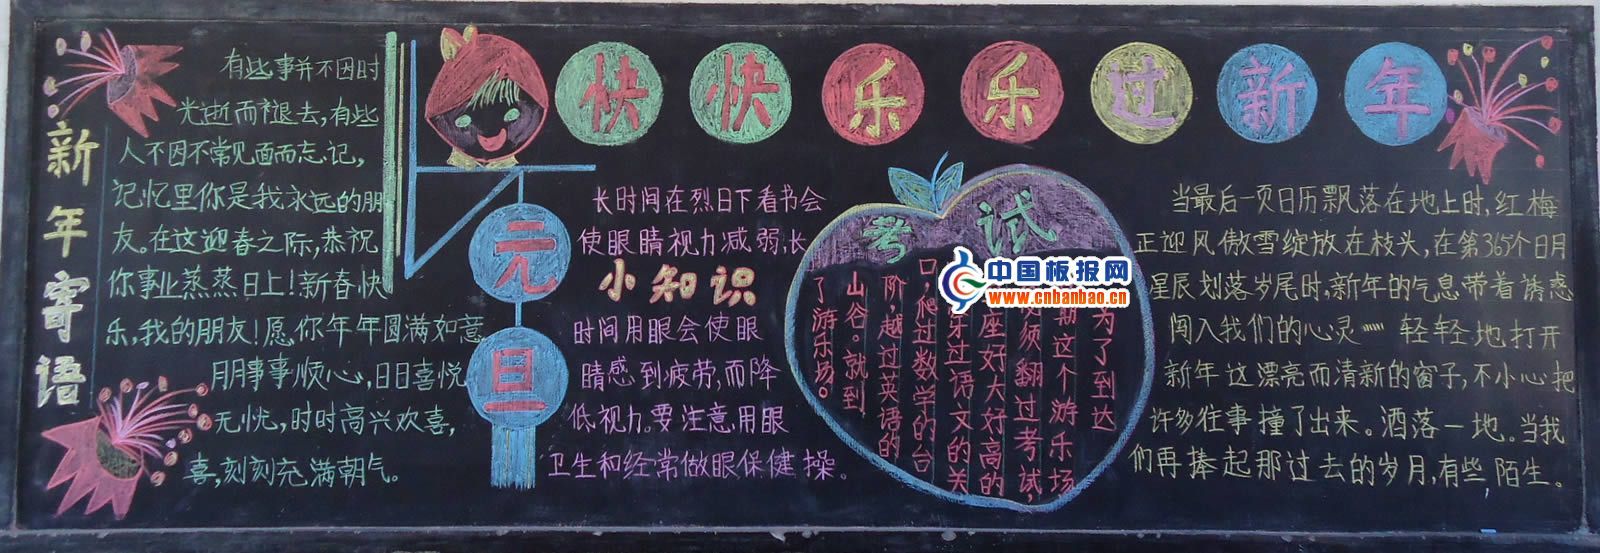 快快乐乐过新年
新年寄语
有些事并不因时
光逝而褪去,有些
人不因不常见面而忘记,
记忆里你是我永远的朋
友。在这迎春之际,恭祝
你事业蒸蒸日上!新春快
乐,我的朋友!愿你年年圆满如意
月月事事顺心,日日喜悦
无忧,时时高兴欢喜,
喜,刻刻充满朝气。
元旦
长时间在烈日下看书会
使眼睛视力减弱,长
小知识
时间用眼会使眼
睛感到疲劳,而降
低视力。要注意用眼
卫生和经常做眼保健操。
考试
为了到达
期这个游乐场,
须翻过考试,
座好大好高的
过语文的关
口,爬过数学的台
阶,越过英语的
山谷。就到
了游乐场。
中国板报网
www.cnbanbao.cn
当最后一页日历飘落在地上时,红梅
正迎风傲雪绽放在枝头,在第365个日月
星辰划落岁尾时,新年的气息带着诱惑
闯入我们的心灵……轻轻地打开
新年这漂亮而清新的窗子,不小心把
许多往事撞了出来。洒落一地。当我
们再捧起那过去的岁月,有些陌生。